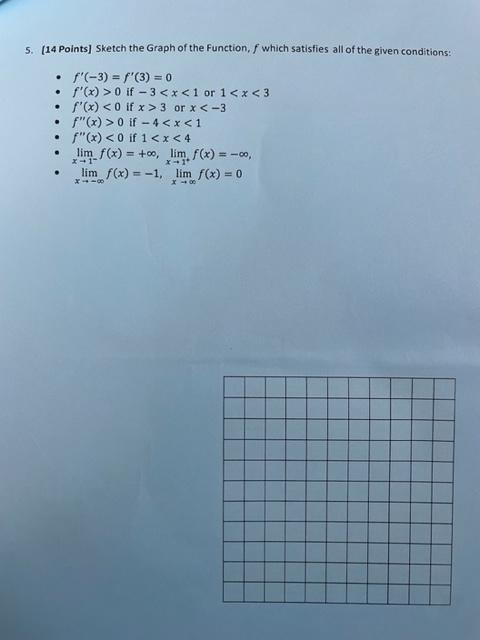 5. [14 Points] Sketch the Graph of the Function, f which satisfies all of the given conditions:
• f′(−3) = f′(3) = 0
• f′(x) > 0 if − 3 < x < 1 or 1 < x < 3
• f′(x) < 0 if x > 3 or x < −3
• f″(x) > 0 if − 4 < x < 1
• f″(x) < 0 if 1 < x < 4
• lim x→1⁻ f(x) = +∞, lim x→1⁺ f(x) = −∞,
• lim x→−∞ f(x) = −1, lim x→∞ f(x) = 0